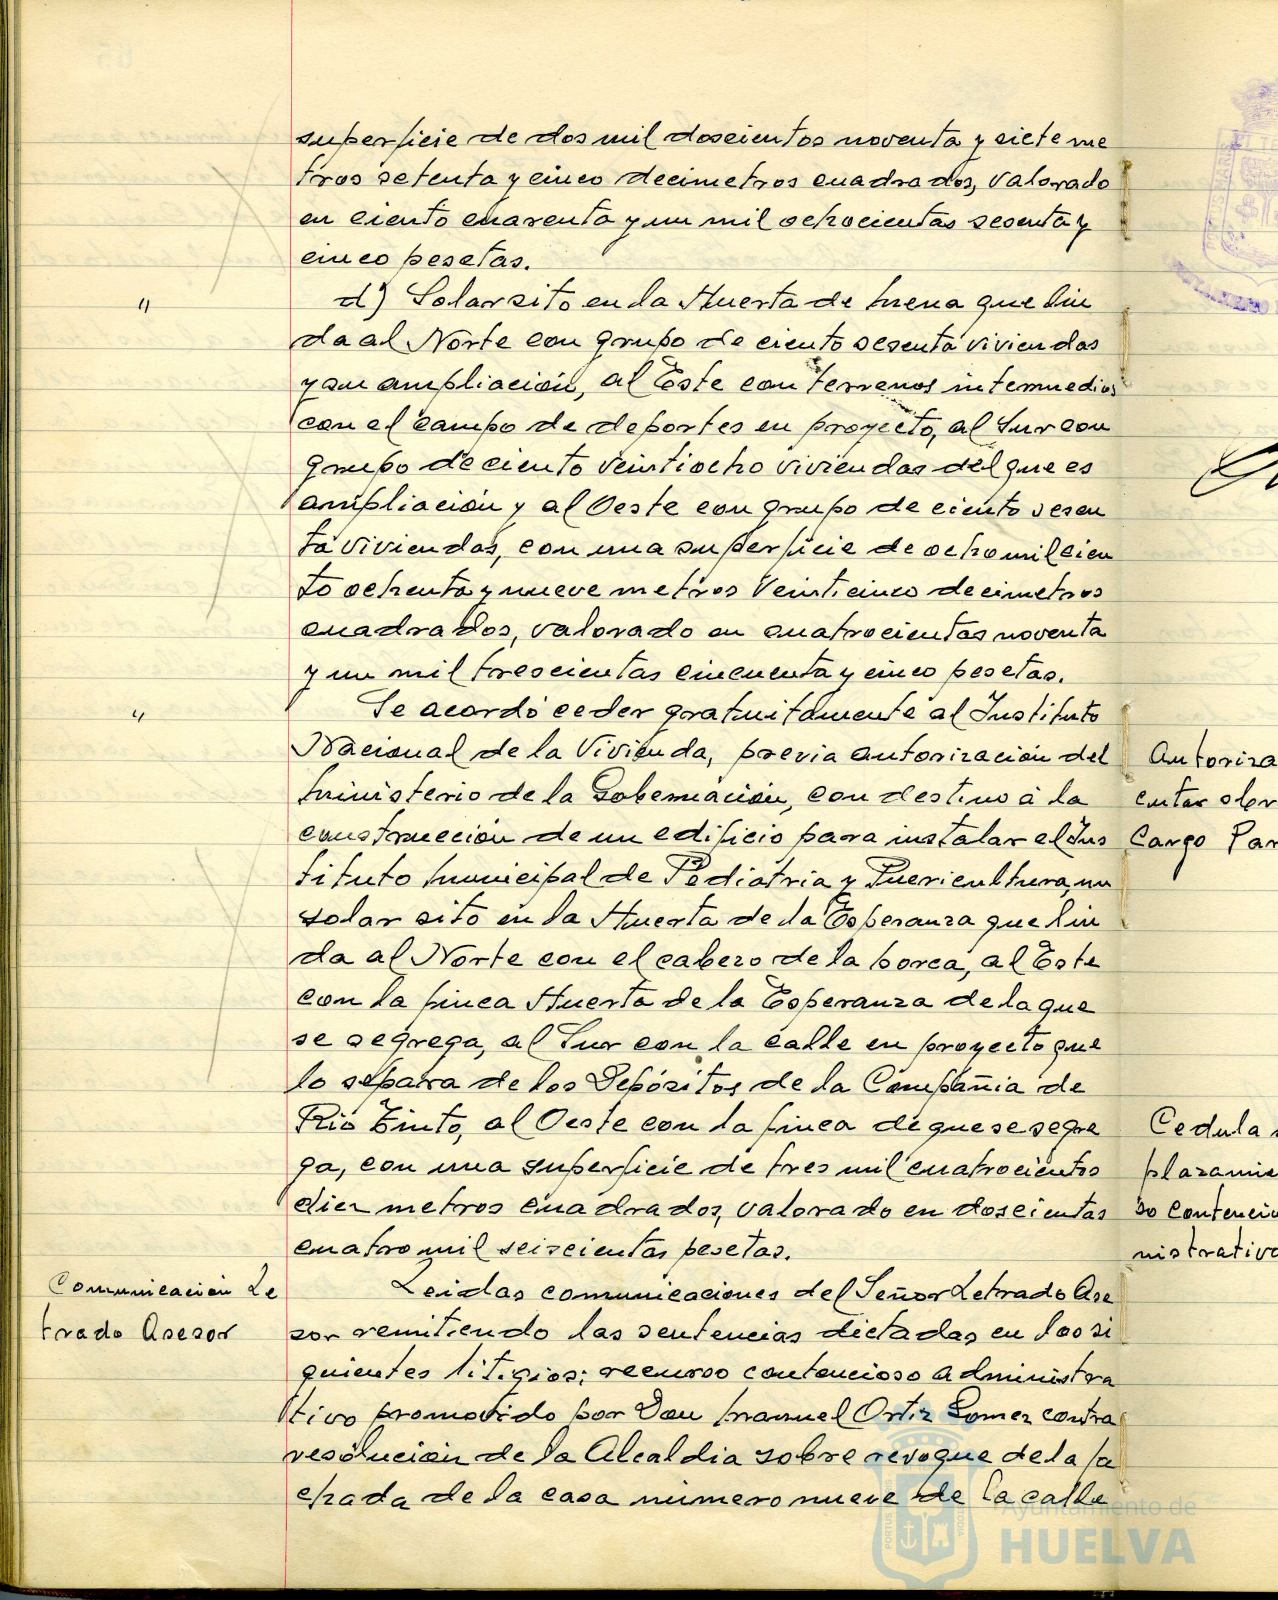 superficie de dos mil doscientos noventa y siete me
tros setenta y cinco decimetros cuadrados, valorado
en ciento cuarenta y un mil ochocientas sesenta y
cinco pesetas.
"
d) Solar sito en la Huerta de Mena que lin
da al Norte con grupo de ciento sesenta viviendas
y su ampliación, al Este con terrenos intermedios
con el campo de deportes en proyecto, al Sur con
grupo de ciento veintiocho viviendas del que es
ampliación y al Oeste con grupo de ciento sesen
ta viviendas, con una superficie de ocho mil cien
to ochenta y nueve metros veinticinco decimetros
cuadrados, valorado en cuatrocientas noventa
y un mil trescientas cincuenta y cinco pesetas.
"
Se acordó ceder gratuitamente al Instituto
Nacional de la Vivienda, previa autorización del
Ministerio de la Gobernación, con destino á la
construcción de un edificio para instalar el Ins
tituto Municipal de Pediatria y Puericultura, un
solar sito en la Huerta de la Esperanza que lin
da al Norte con el cabezo de la horca, al Este
con la finca Huerta de la Esperanza de la que
se segrega, al Sur con la calle en proyecto que
lo separa de los Depósitos de la Compañia de
Rio Tinto, al Oeste con la finca de que se segre
ga, con una superficie de tres mil cuatrocientos
diez metros cuadrados, valorado en doscientas
cuatro mil seiscientas pesetas.
Comunicación Le
trado Asesor
Leidas comunicaciones del Señor Letrado Ase
sor remitiendo las sentencias dictadas en los si
guientes litigios: recurso contencioso administra
tivo promovido por Don Manuel Ortiz Gomez contra
resolución de la Alcaldia sobre revoque de la fa
chada de la casa número nueve de la calle
Autoriza
Cargo Par
Cedula
plazamie
so contencio
nistrativo
Ayuntamiento de
HUELVA